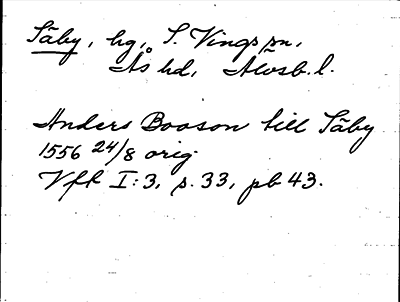 Säby, hg, S. Vings sn,
Ås hd, Älvsb. l.
Anders Booson till Säby
1556 24/8 orig
Vfk I:3, s. 33, pb 43.